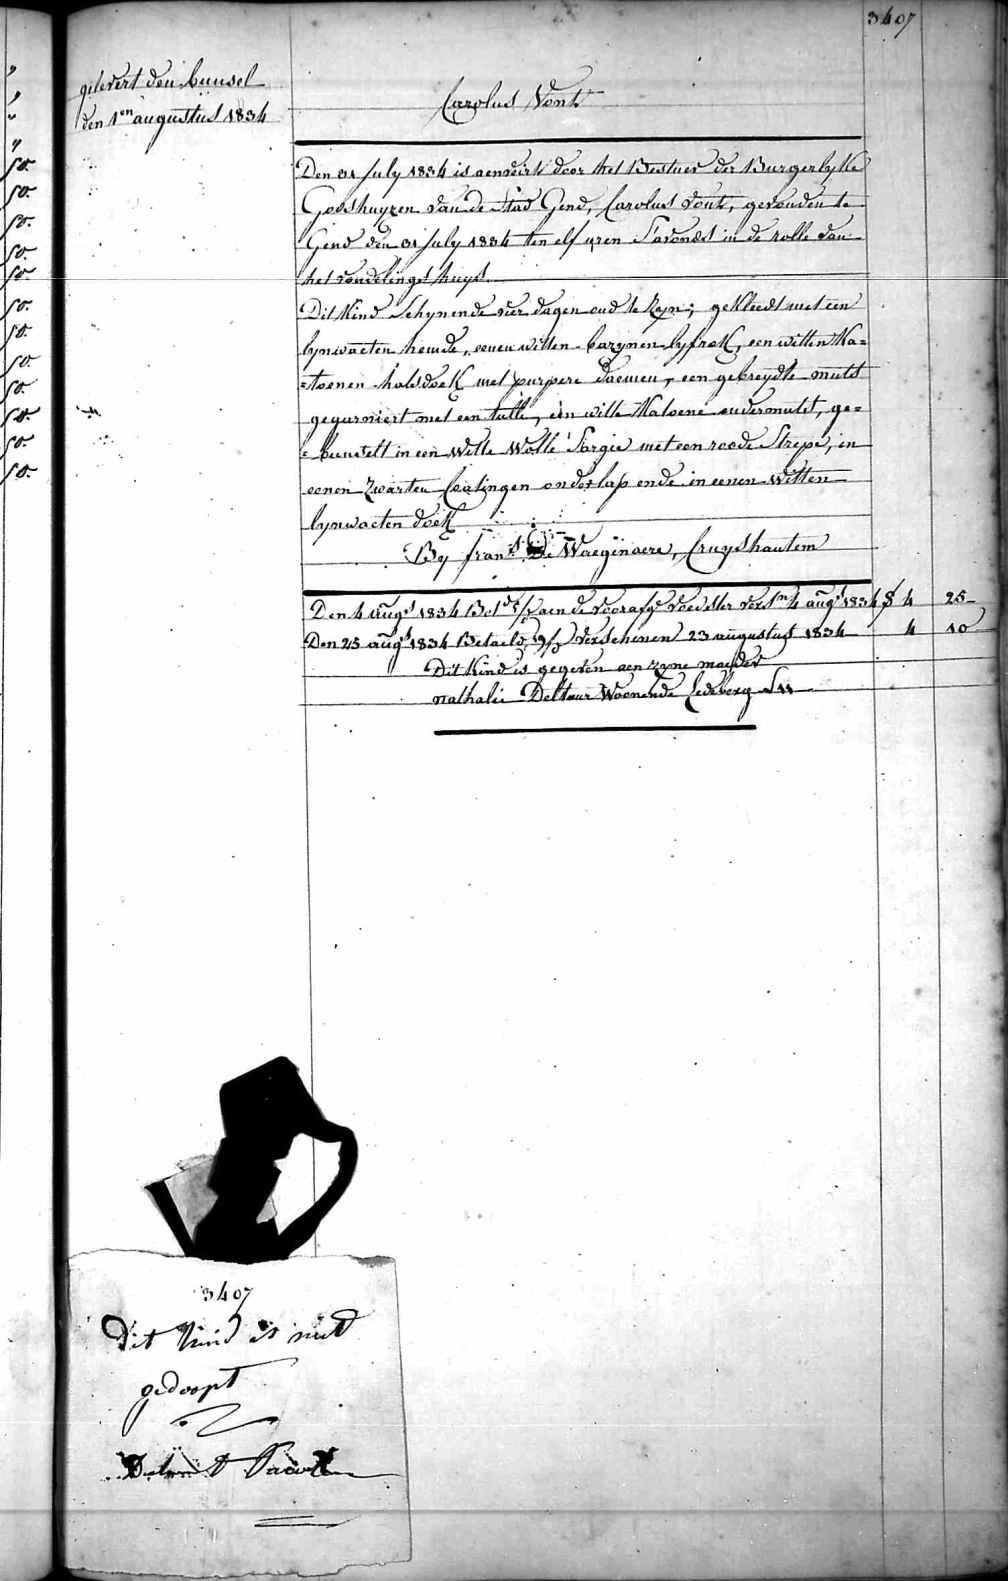 3407
gelevert den bunsel
den 1en augustus 1834
Carolus Vont
Den 31 July 1834 is aenveirt door het Bestuer der Burgerlyke
Godshuyzen van de Stad Gend, Carolus Vont, gevonden te
Gend den 31 July 1834 ten elf uren s'avonds in de rolle van
het vondelings huys.
Dit kind schynende vier dagen oud te zyn; gekleedt met een
lynwaeten hemde, eenen witten bazynen lyfrok, een witten ka=
=toenen halsdoek met purpere blaemen, een gebreydte muts
gegarniert met een tulle, een witte katoene ondermuts, ge=
=bunselt in een witte wolle sargie met een roode strepe, en
eenen zwarten Catingen onderlap ende in eenen witten
lynwaeten doek
By frans De Waegenaere, Cruyshautem
Den 4 augs 1834 Betd aen de voorafge voedster vers 4 augt 1834 8 4 25
Den 25 augs 1834 Betaeld verschenen 23 augustus 1834 4 10
Dit kind is gegeven aen zyne moeder
nathalie Deltour Woonende Ledeberg
so.
so.
so.
so.
so.
so.
so.
so.
so.
so.
so.
so.
3407
Dit kind is niet
gedoopt